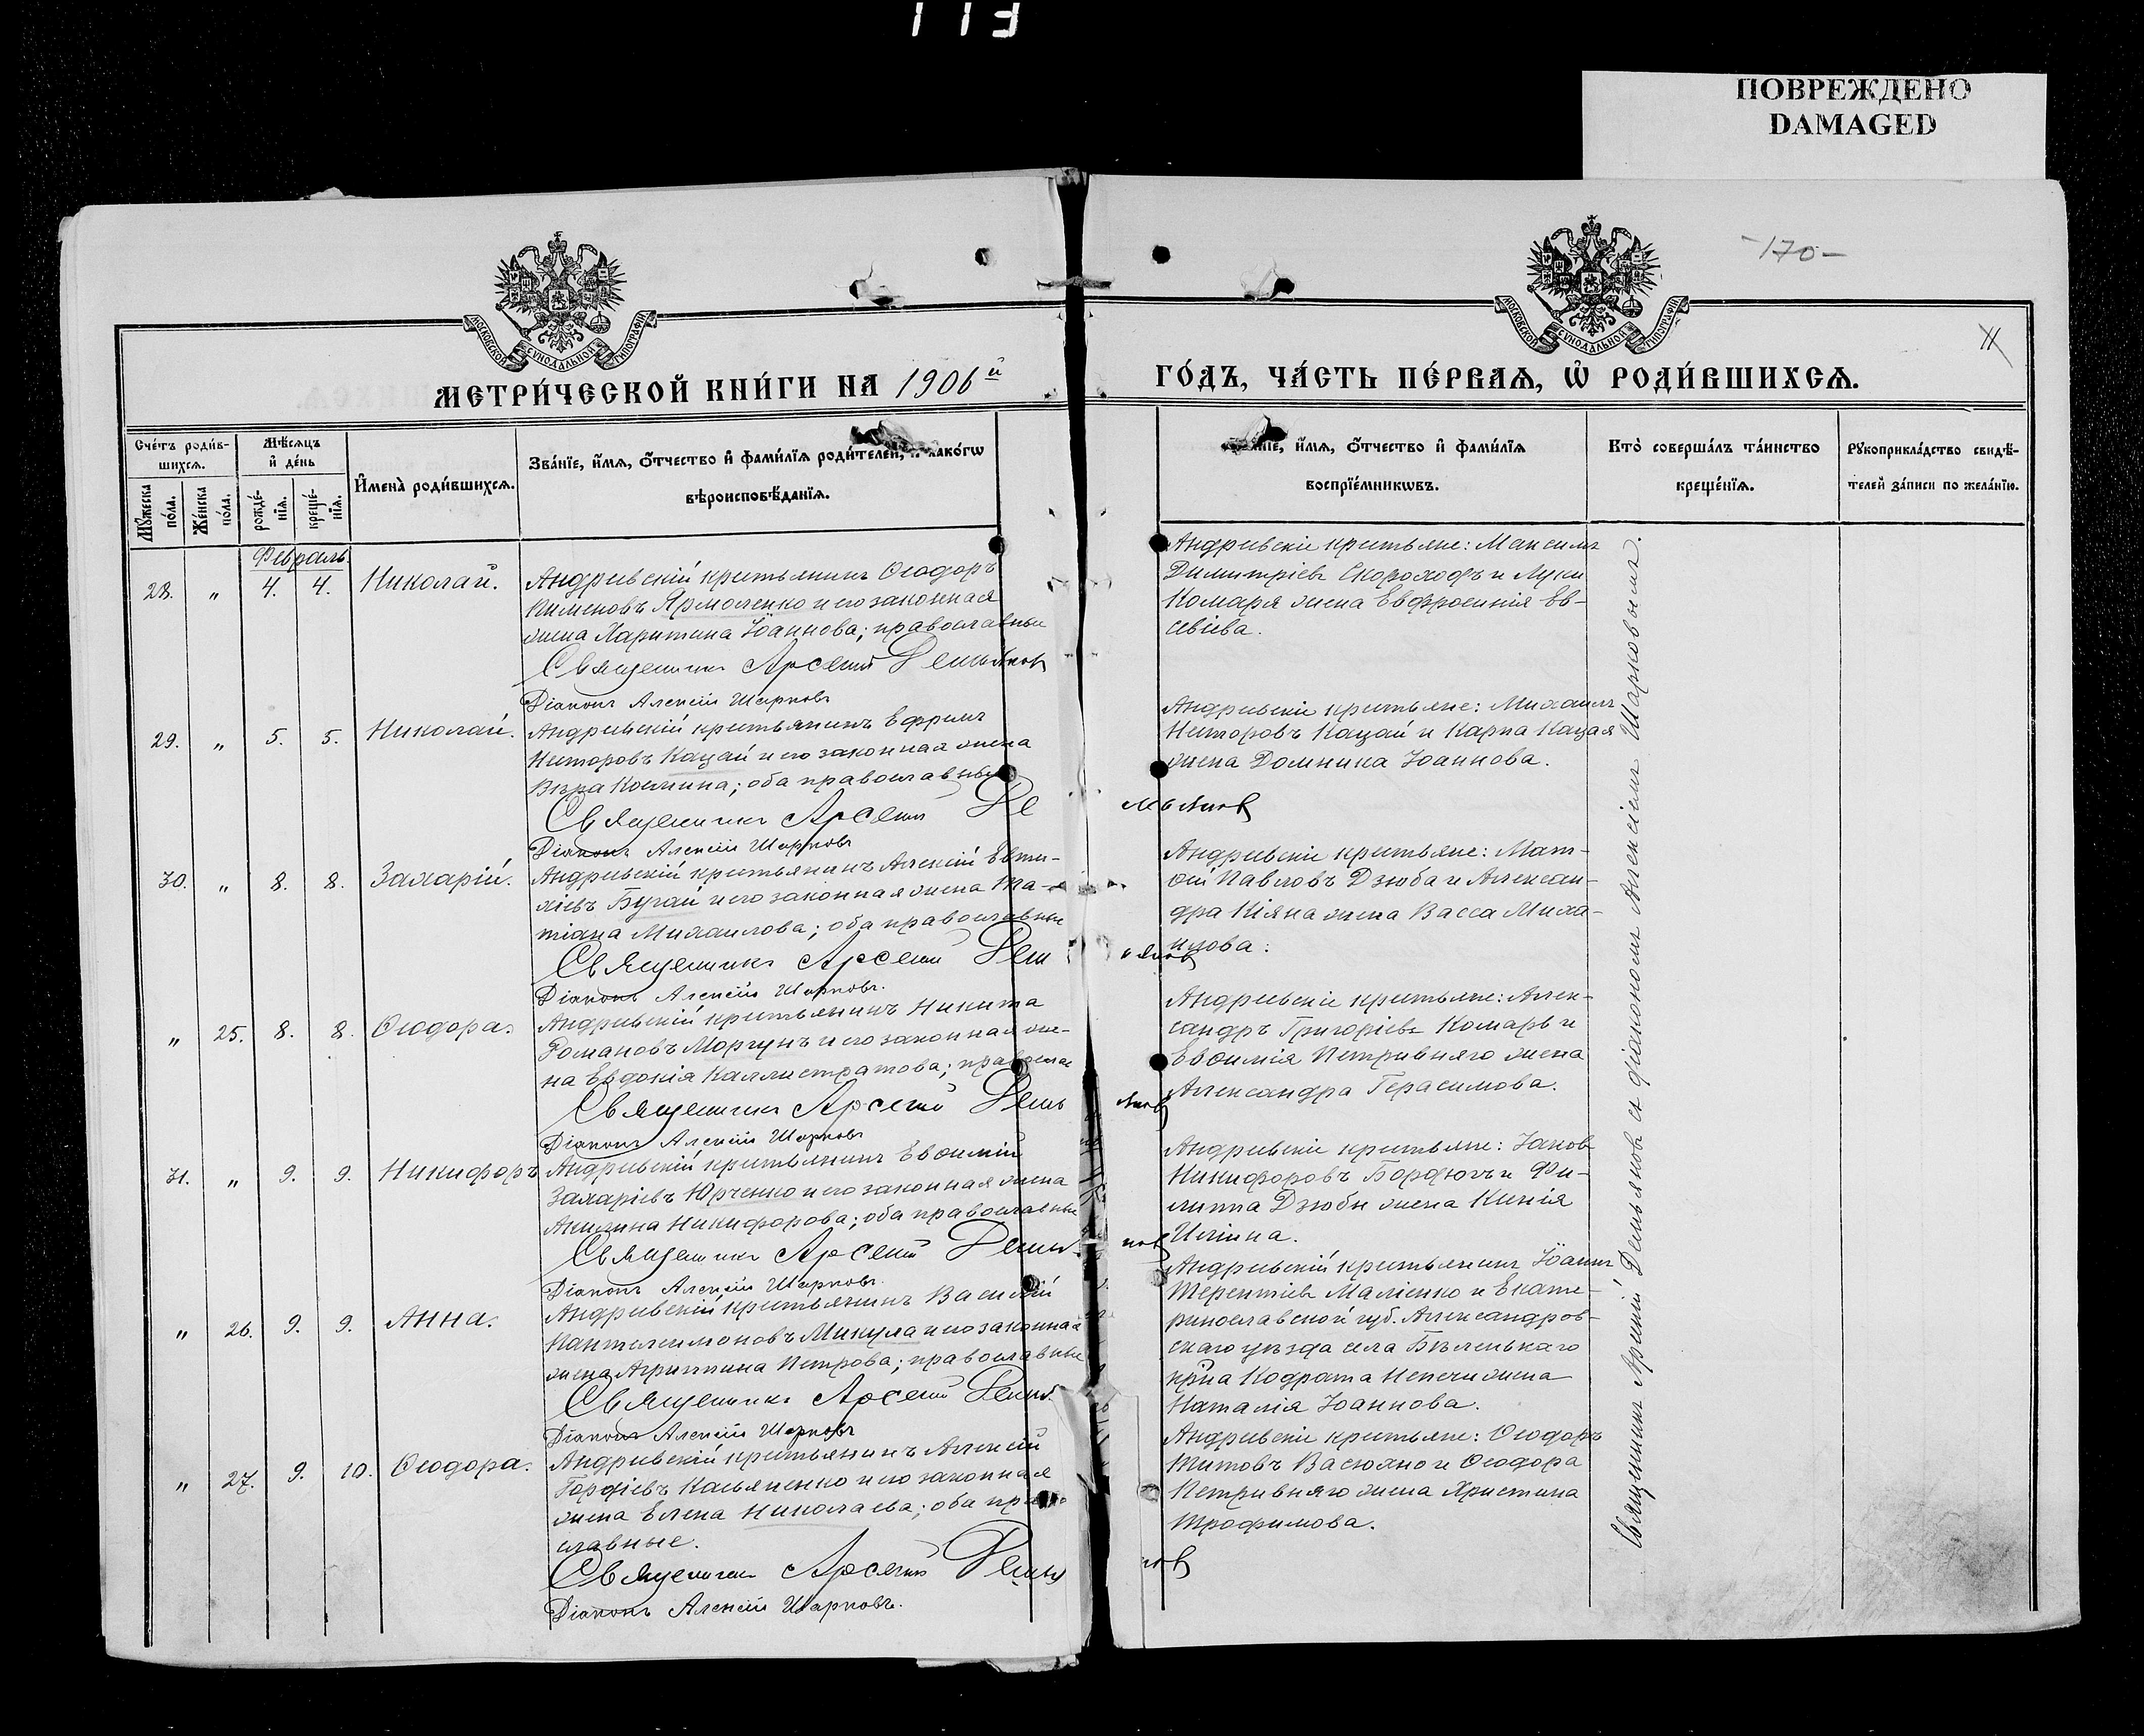 113
ПОВРЕЖДЕНО
DAMAGED
-170-
МОСКОВСКОЙ СѴНОДАЛЬНОЙ ТИПОГРАФІИ
МОСКОВСКОЙ СѴНОДАЛЬНОЙ ТИПОГРАФІИ
МЕТРИ́ЧЕСКОЙ КНИ́ГИ НА 1906й
ГО́ДЪ, ЧА́СТЬ ПЕ́РВАѦ, Ѡ҆ РОДИ́ВШИХСѦ.
Сче́тъ роди́в-
шихсѧ.
Мꙋ́жеска по́ла.
Же́нска по́ла.
Мѣ́сѧцъ
и҆ де́нь
рожде́-
нїѧ.
креще́-
нїѧ.
И҆мена̀ роди́вшихсѧ.
Зва́нїе, и҆́мѧ, ѻ҆́тчество и҆ фами́лїѧ роди́телей, и҆ како́гѡ
вѣроисповѣ́данїѧ.
Зва́нїе, и҆́мѧ, ѻ҆́тчество и҆ фами́лїѧ
воспрїе́мникѡвъ.
Кто̀ соверша́лъ та́инство
креще́нїѧ.
Рꙋкоприкла́дство свидѣ́-
телей за́писи по жела́нїю.
Февраль
28. „ 4. 4. Николай.
Андреевскій крестьянинъ Ѳеодоръ
Пименовъ Ярмоленко и его законная
жена Харитина Іоаннова; православные
Священникъ Арсеній Демьянов
Діаконъ Алексій Шарковъ
Андреевскіе крестьяне: Максимъ
Димитріевъ Скороходъ и Луки
Комаря жена Евфросинія Ев-
севіева.
29. „ 5. 5. Николай.
Андреевскій крестьянинъ Ефремъ
Несторовъ Кацай и его законная жена
Вѣра Космина; оба православные
Священникъ Арсеній Демьянов
Діаконъ Алексій Шарковъ
Андреевскіе крестьяне: Михаилъ
Несторовъ Кацай и Карпа Кацая
жена Домника Іоаннова.
30. „ 8. 8. Захарій.
Андреевскій крестьянинъ Алексій Евти-
хіевъ Бугай и его законная жена Та-
тіана Михаилова; оба православные
Священникъ Арсеній Демьянов
Діаконъ Алексій Шарковъ.
Андреевскіе крестьяне: Мат-
ѳій Павловъ Дзюба и Алексан-
дра Кіяна жена Васса Миха-
илова.
„ 25. 8. 8. Ѳеодора.
Андреевскій крестьянинъ Никита
Романовъ Моргунъ и его законная же-
на Евдокія Каллистратова; православн
Священникъ Арсеній Демьянов
Діаконъ Алексій Шарковъ
Андреевскіе крестьяне: Алек-
сандръ Григоріевъ Комаръ и
Евѳимія Петривняго жена
Александра Герасимова.
31. „ 9. 9. Никифоръ
Андреевскій крестьянинъ Евѳимій
Захаріевъ Юрченко и его законная жена
Акилина Никифорова; оба православные
Священникъ Арсеній Демьянов
Діаконъ Алексій Шарковъ.
Андреевскіе крестьяне: Іаковъ
Никифоровъ Бордюгъ и Фи-
липпа Дзюбы жена Ксенія
Илліина.
„ 26. 9. 9. Анна.
Андреевскій крестьянинъ Василій
Пантелеимоновъ Микула и его законная
жена Агриппина Петрова; православные
Священникъ Арсеній Демья
Діаконъ Алексій Шарковъ
Андреевскій крестьянинъ Іоаннъ
Терентіевъ Маліенко и Екате-
ринославской губ. Александров-
скаго уѣзда села Бѣленькаго
кр-на Кодрата жена
Наталія Іоаннова.
„ 27. 9. 10. Ѳеодора.
Андреевскій крестьянинъ Алексій
Гордіевъ Касьяненко и его законная
жена Елена Николаева; оба право
славные.
Священникъ Арсеній Демьянов
Діаконъ Алексій Шарковъ.
Андреевскіе крестьяне: Ѳеодоръ
Титовъ и Ѳеодора
Петривняго жена Христина
Трофимова.
Священникъ Арсеній Демьяновъ съ діакономъ Алексіемъ Шарковымъ.